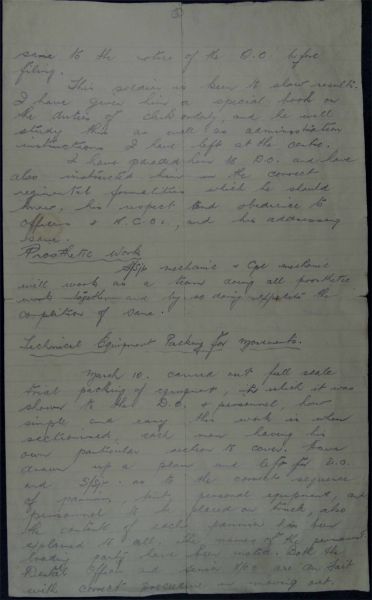 same to the notice of the D.O. before
filing.
This soldier is keen to show results.
I have given him a special book on
the duties of clerk orderly, and he will
study this as well as administration
instructions I have left at the centre.
I have paraded him to D.O. and have
also instructed him in the correct
regimental formalities which he should
know, his respect and obedience to
officers & N.C.Os, and his addressing
same.
Prosthetic Work
S/Sgt mechanic & Cpl mechanic
will work as a team doing all prosthetic
work together and by so doing expedite the
completion of same.
Technical Equipment Packing for movements.
March 10. carried out full scale
trial packing of equipment, in which it was
shown to the D.O. & personnel, how
simple and easy this work is when
sectionised, each man having his
own particular section to cover. I have
drawn up a plan and left for D.O.
and S/Sgt. as to the complete sequence
of panniers, tent, personal equipment, and
personnel to be placed on truck, also
the contents of each pannier has been
explained to all. The names of the personnel
loading party have been noted. Both the
Dental Officer and senior NCO are au fait
with correct procedure in moving out.